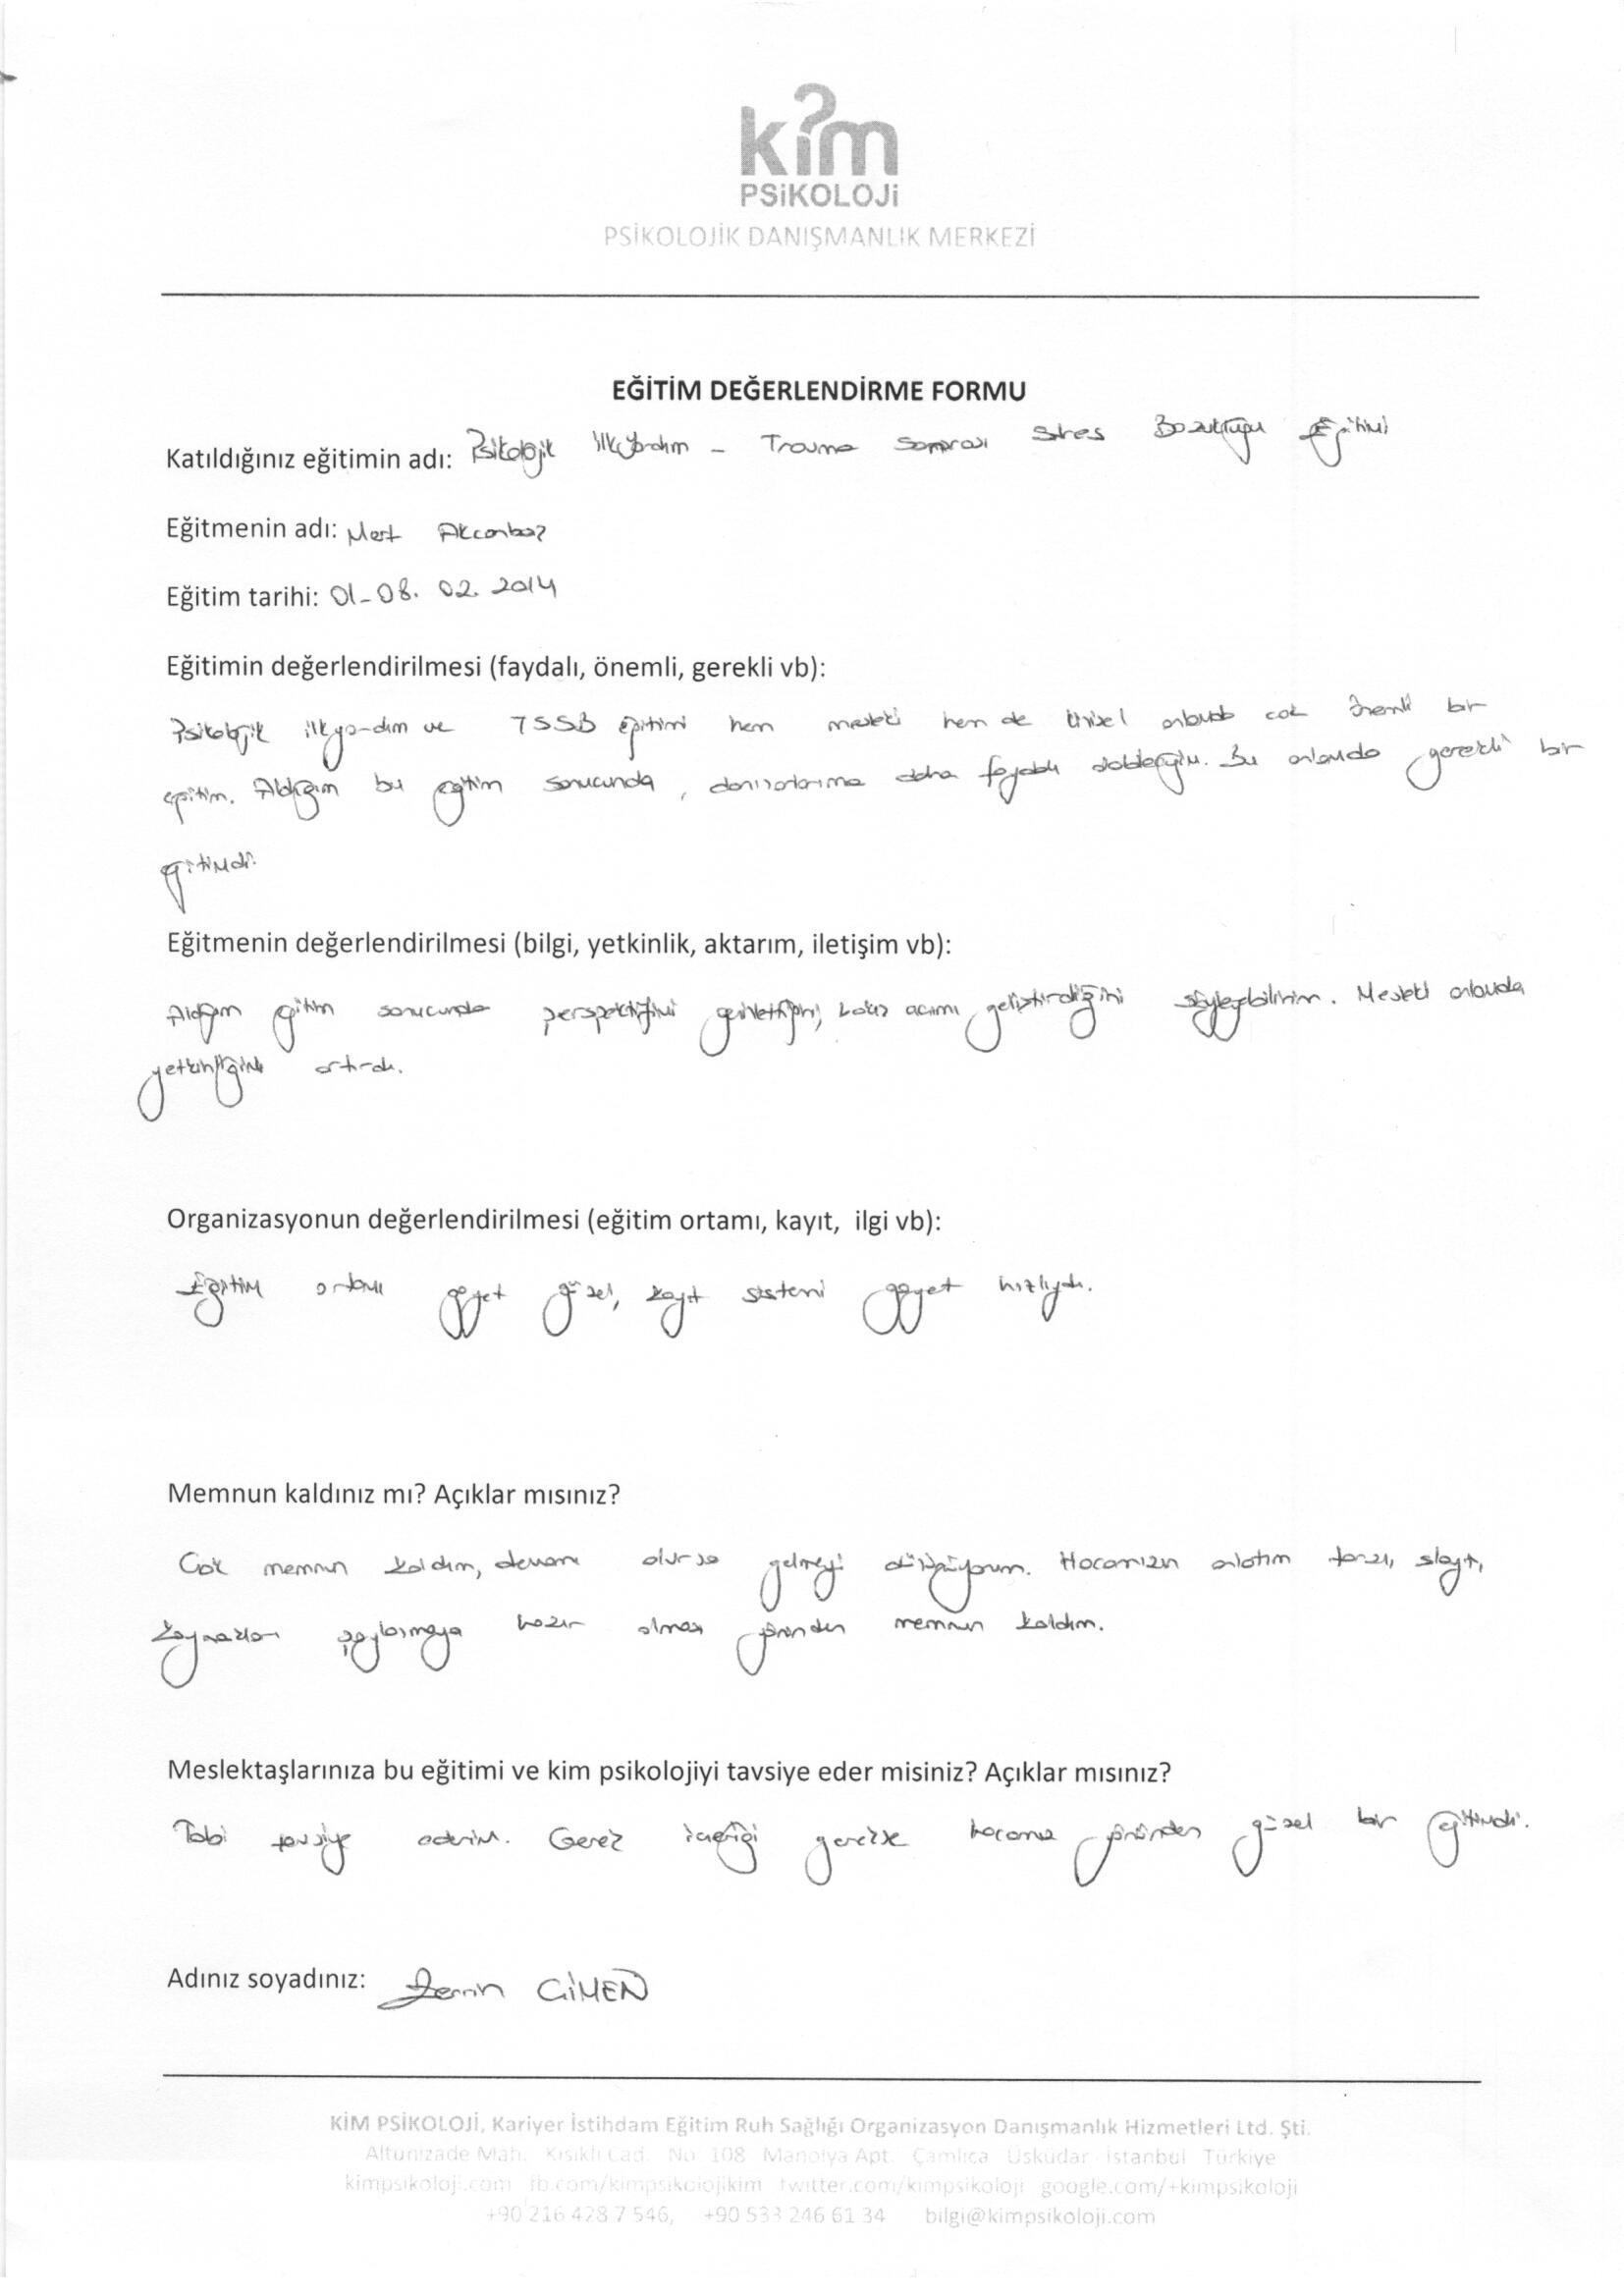 kim
PSiKOLOJi
PSİKOLOJİK DANIŞMANLIK MERKEZİ
EĞİTİM DEĞERLENDİRME FORMU
Katıldığınız eğitimin adı: Psikolojik ilkyardım - Travma Sonrası Stres Bozukluğu Eğitimi
Eğitmenin adı: Mert Akcanbaz
Eğitim tarihi: 01-08. 02. 2014
Eğitimin değerlendirilmesi (faydalı, önemli, gerekli vb):
Psikolojik ilkyardım ve TSSB eğitimi hem mesleki hem de kişisel anlamda cok önemli bir
eğitim. Aldığım bu eğitim sonucunda, danışanlarıma daha faydalı olabileceğim. Bu anlamda gerekli bir
eğitimdi.
Eğitmenin değerlendirilmesi (bilgi, yetkinlik, aktarım, iletişim vb):
Aldığım eğitim sonucunda perspektifimi genişlettiğini, bakış acımı geliştirdiğini söyleyebilirim. Mesleki anlamda
yetkinliğimi artırdı.
Organizasyonun değerlendirilmesi (eğitim ortamı, kayıt, ilgi vb):
Eğitim ortamı gayet güzel, kayıt sistemi gayet hızlıydı.
Memnun kaldınız mı? Açıklar mısınız?
Cok memnun kaldım, devamı olursa gelmeyi düşünüyorum. Hocamızın anlatım tarzı, slayt,
kaynakları paylaşmaya hazır olması yönünden memnun kaldım.
Meslektaşlarınıza bu eğitimi ve kim psikolojiyi tavsiye eder misiniz? Açıklar mısınız?
Tabi tavsiye ederim. Gerek içeriği gerekse hocamız yönünden güzel bir eğitimdi.
Adınız soyadınız: CİMEN
KİM PSİKOLOJİ, Kariyer İstihdam Eğitim Ruh Sağlığı Organizasyon Danışmanlık Hizmetleri Ltd. Şti.
Altunizade Mah. Kısıklı Cad. No 108 Manolya Apt. Çamlıca Üsküdar İstanbul Türkiye
kimpsikoloji.com fb.com/kimpsikolojikim twitter.com/kimpsikoloji google.com/+kimpsikoloji
+90 216 428 7 546, +90 533 246 61 34 bilgi@kimpsikoloji.com